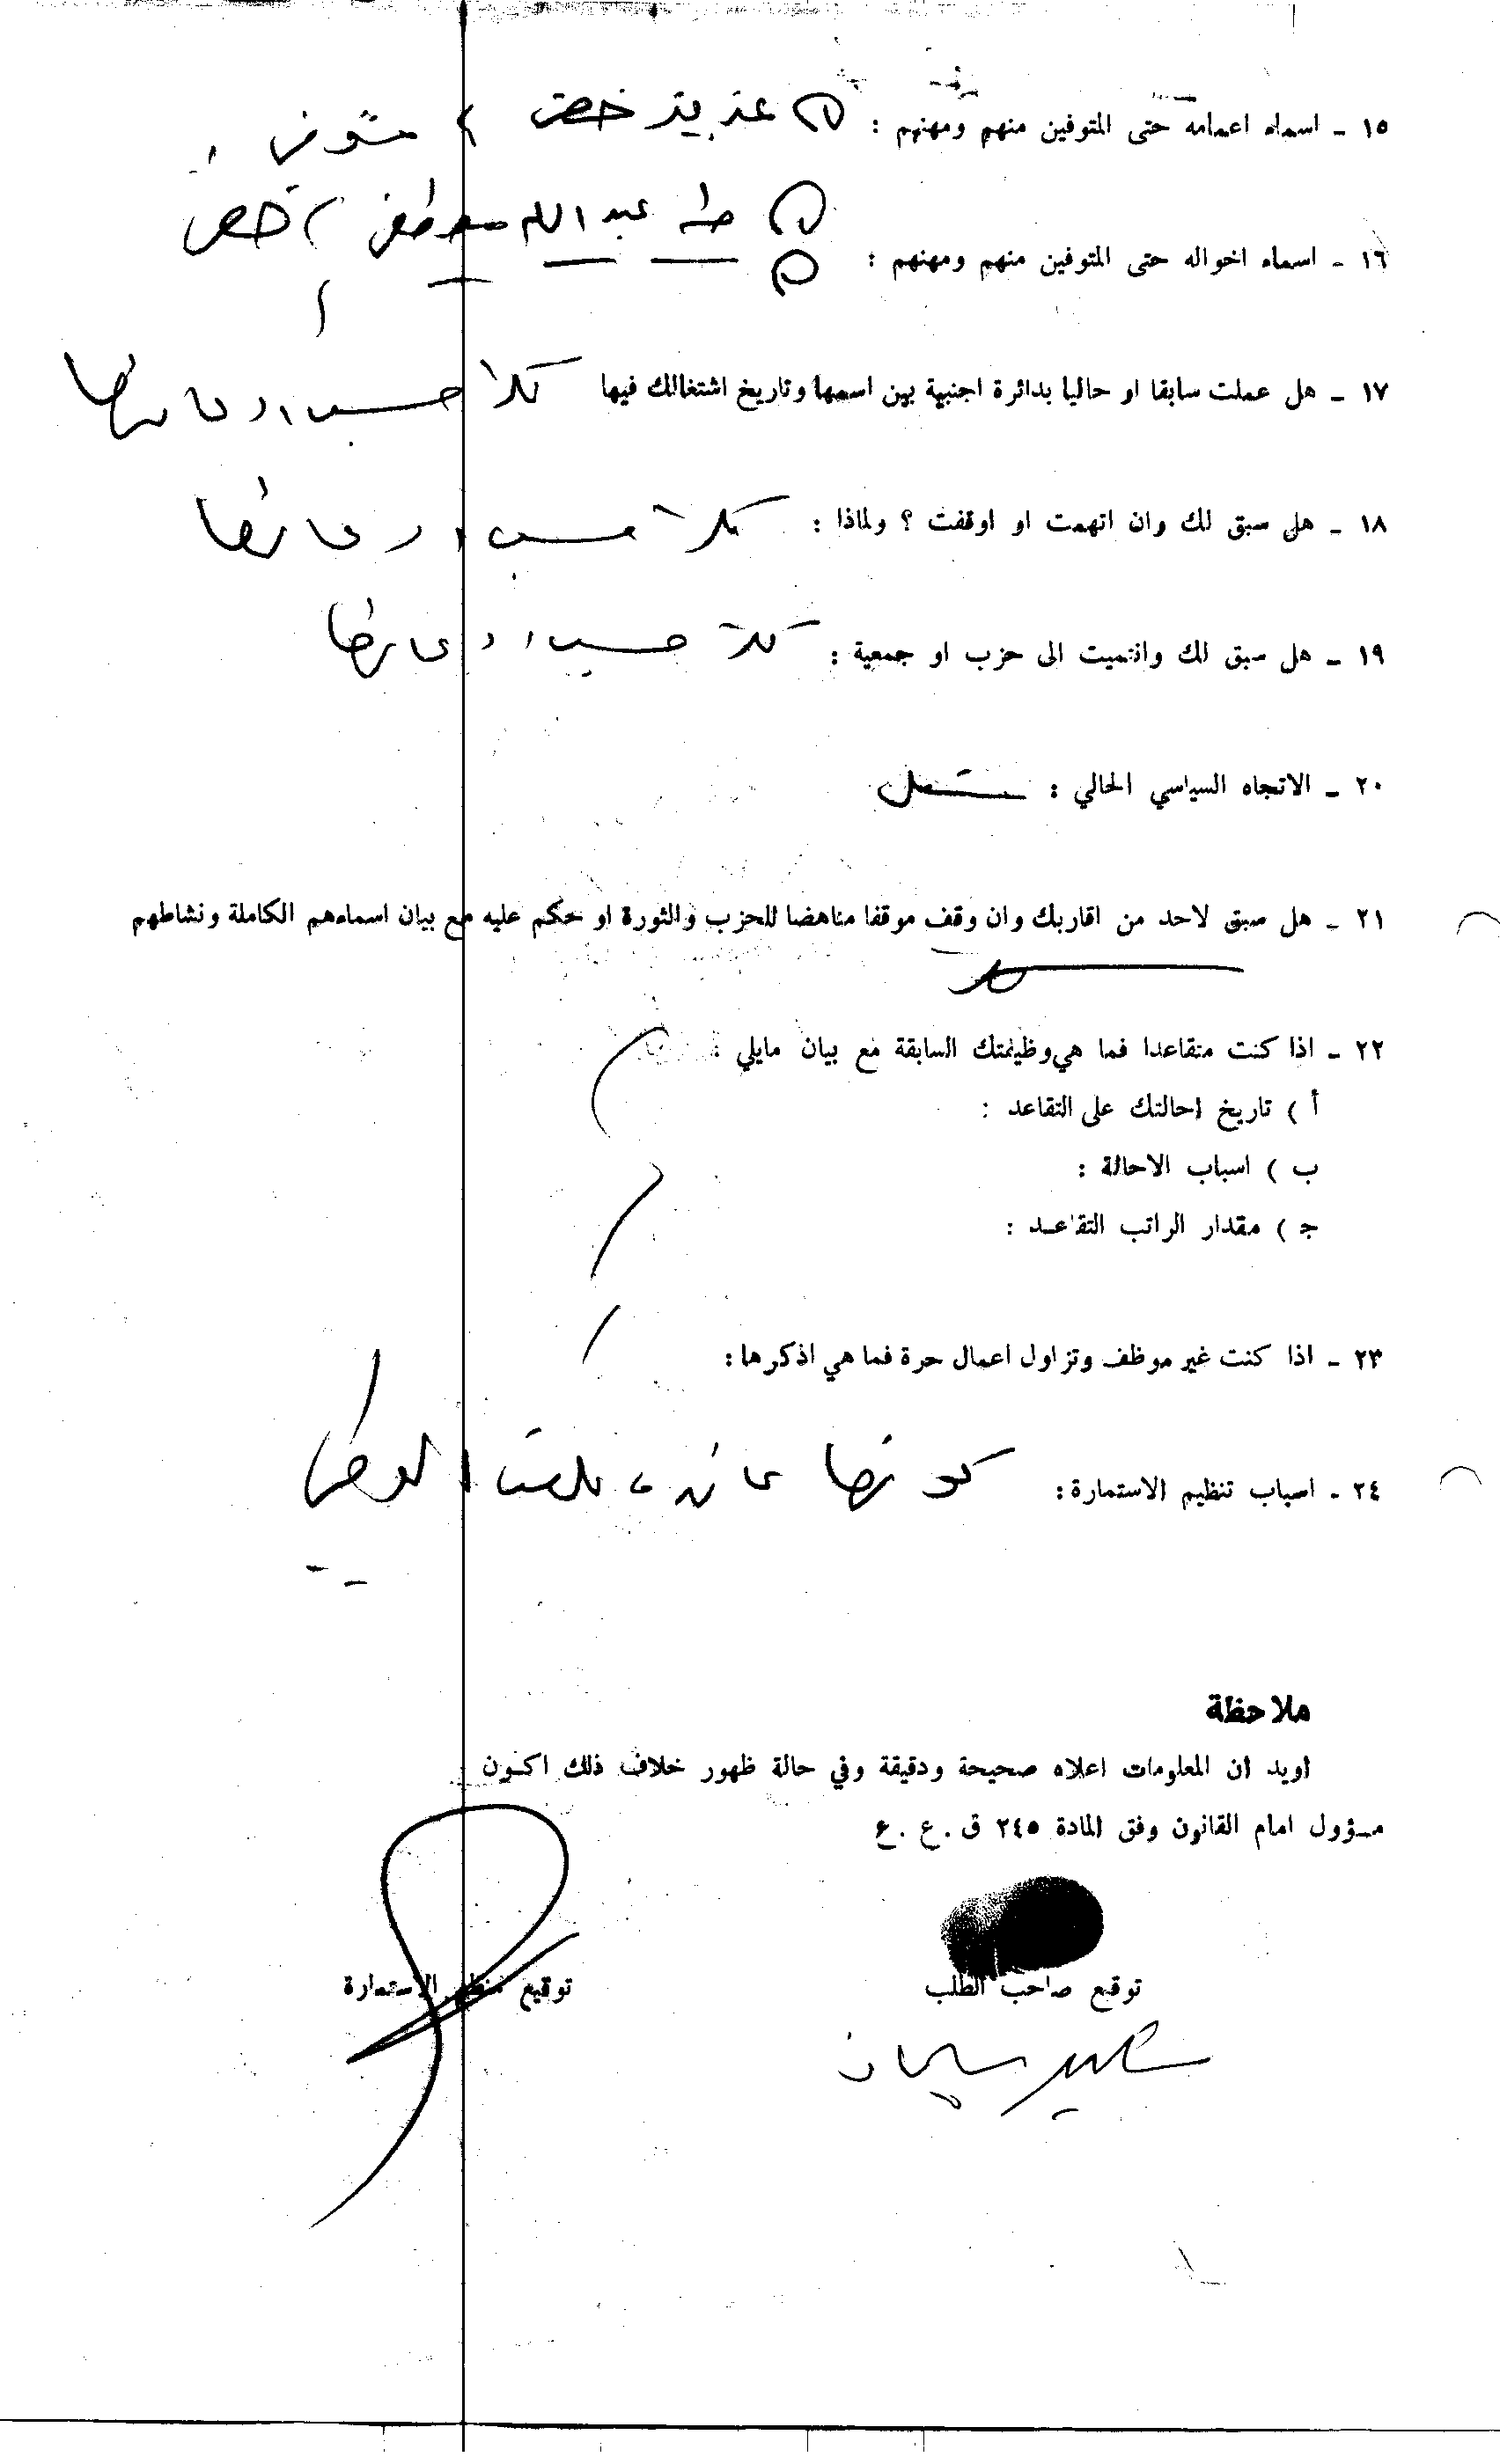 ١٥ - اسماء اعمامه حتى المتوفين منهم ومهنهم : عزيز خضر متوفي
طه عبد الله مصطفى خضر
١٦ - اسماء اخواله حتى المتوفين منهم ومهنهم :
١٧ - هل عملت سابقا او حاليا بدائرة اجنبية بين اسمها وتاريخ اشتغالك فيها كلا حسب ادعائها
١٨ - هل سبق لك وان اتهمت او اوقفت ؟ ولماذا : كلا حسب ادعائها
١٩ - هل سبق لك وانتميت الى حزب او جمعية : كلا حسب ادعائها
٢٠ - الاتجاه السياسي الحالي : مستقل
٢١ - هل سبق لاحد من اقاربك وان وقف موقفا مناهضا للحزب والثورة او حكم عليه مع بيان اسماءهم الكاملة ونشاطهم
كلا
٢٢ - اذا كنت متقاعدا فما هي وظيفتك السابقة مع بيان مايلي :
أ ) تاريخ احالتك على التقاعد :
ب ) اسباب الاحالة :
ج ) مقدار الراتب التقاعد :
٢٣ - اذا كنت غير موظف وتزاول اعمال حرة فما هي اذكرها :
٢٤ - اسباب تنظيم الاستمارة : كونها
ملاحظة
اويد ان المعلومات اعلاه صحيحة ودقيقة وفي حالة ظهور خلاف ذلك اكون
مسؤول امام القانون وفق المادة ٢٤٥ ق . ع . ع
توقيع صاحب الطلب
توقيع منظم الاستمارة